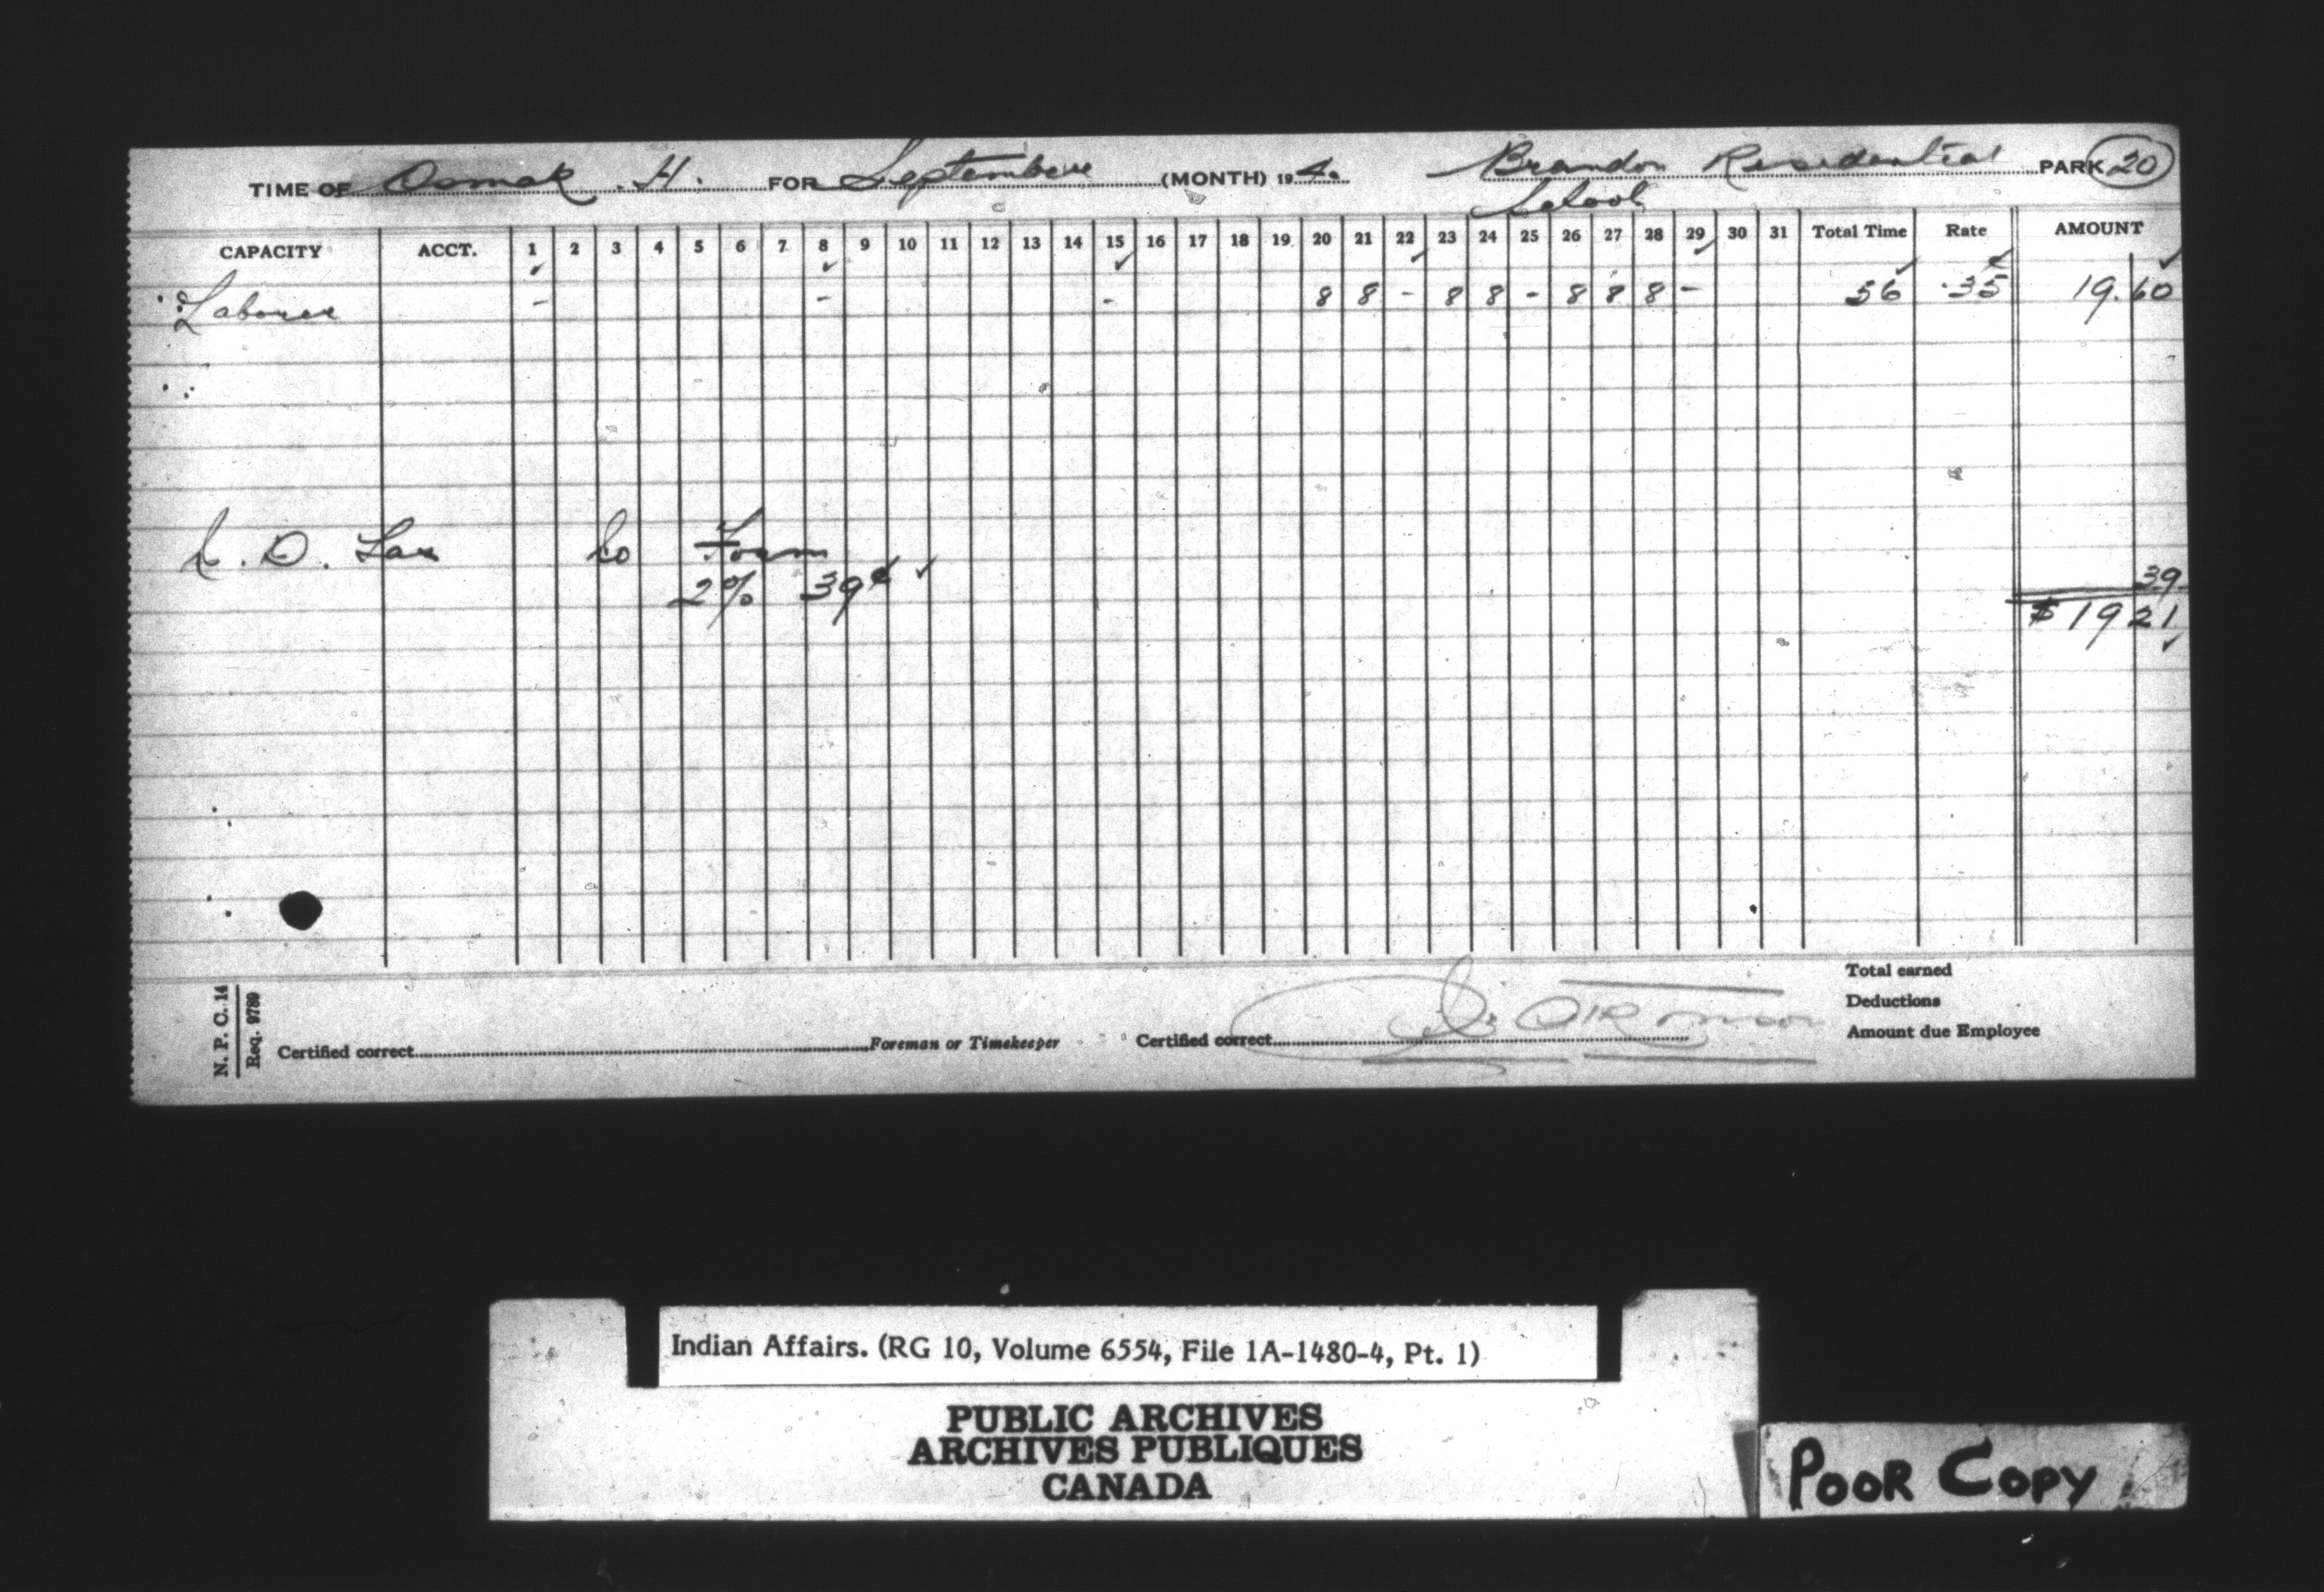 TIME OF Osmak . H. FOR September (MONTH) 1940 Brandon Residential School PARK 20
CAPACITY ACCT. 1 2 3 4 5 6 7 8 9 10 11 12 13 14 15 16 17 18 19 20 21 22 23 24 25 26 27 28 29 30 31 Total Time Rate AMOUNT
Laborer - - - 8 8 - 8 8 - 8 8 8 - 56 .35 19.60
39
2% 39¢ ✓
$ 19 21
Total earned
Deductions
Certified correct Foreman or Timekeeper Certified correct Amount due Employee
N. P. C. 14
Req. 9789
Indian Affairs. (RG 10, Volume 6554, File 1A-1480-4, Pt. 1)
PUBLIC ARCHIVES
ARCHIVES PUBLIQUES
CANADA
POOR COPY